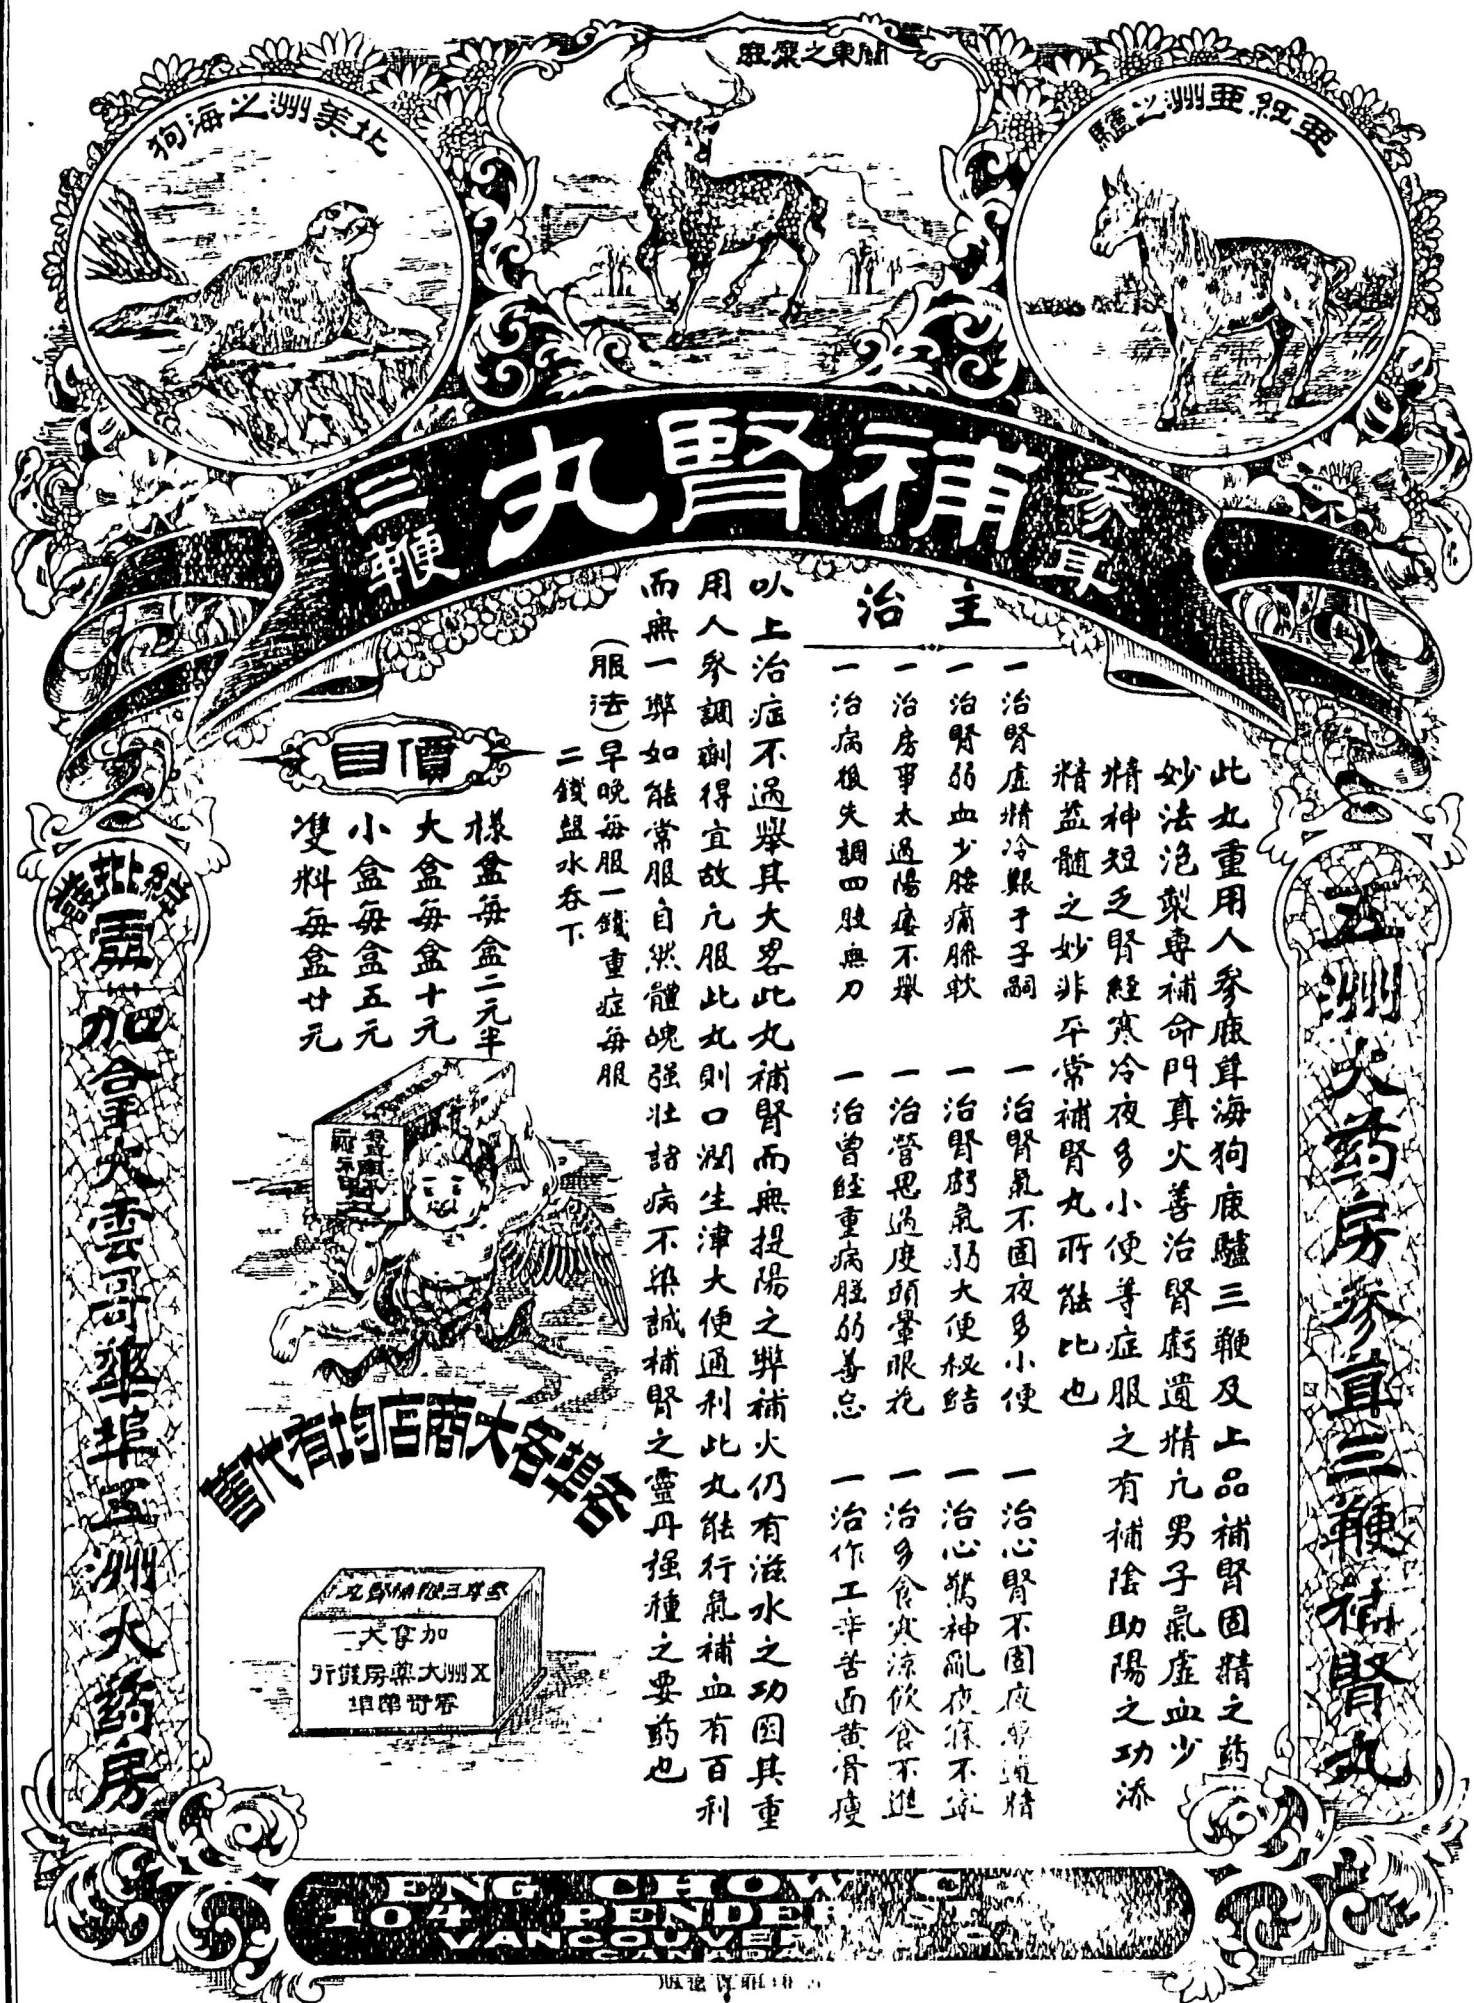 關東之麋鹿
北美洲之海狗
亞紅亞洲之驢
參茸
補腎丸
三鞭
五洲大葯房參茸三鞭補腎丸
此丸重用人參鹿茸海狗鹿驢三鞭及上品補腎固精之葯
妙法泡製專補命門真火善治腎虧遺精凢男子氣虛血少
精神短乏腎經寒冷夜多小便等症服之有補陰助陽之功添
精益髓之妙非平常補腎丸所能比也
主治
一治腎虛精冷艱于子嗣
一治腎氣不固夜多小便
一治心腎不固夜夢遺精
一治腎弱血少腰痛膝軟
一治腎虧氣弱大便秘結
一治心驚神亂夜寐不寧
一治房事太過陽痿不舉
一治營思過度頭暈眼花
一治多食寒涼飲食不進
一治病後失調四肢無力
一治曾經重病腦弱善忘
一治作工辛苦面黄骨瘦
以上治症不過舉其大畧此丸補腎而無提陽之弊補火仍有滋水之功因其重
用人參調劑得宜故凢服此丸則口潤生津大便通利此丸能行氣補血有百利
而無一弊如能常服自然體魄强壮諸病不染誠補腎之靈丹强種之要葯也
(服法)早晚每服一錢重症每服
二錢盐水吞下
價目
樣盒每盒二元半
大盒每盒十元
小盒每盒五元
雙料每盒廿元
各埠各大商店均有代售
參茸三鞭補腎丸
加拿大
洲大藥房發行
雲哥華埠
總批發處
加拿大雲哥華埠五洲大葯房
ENG CHOW
104 PENDER ST
VANCOUVER
CANADA